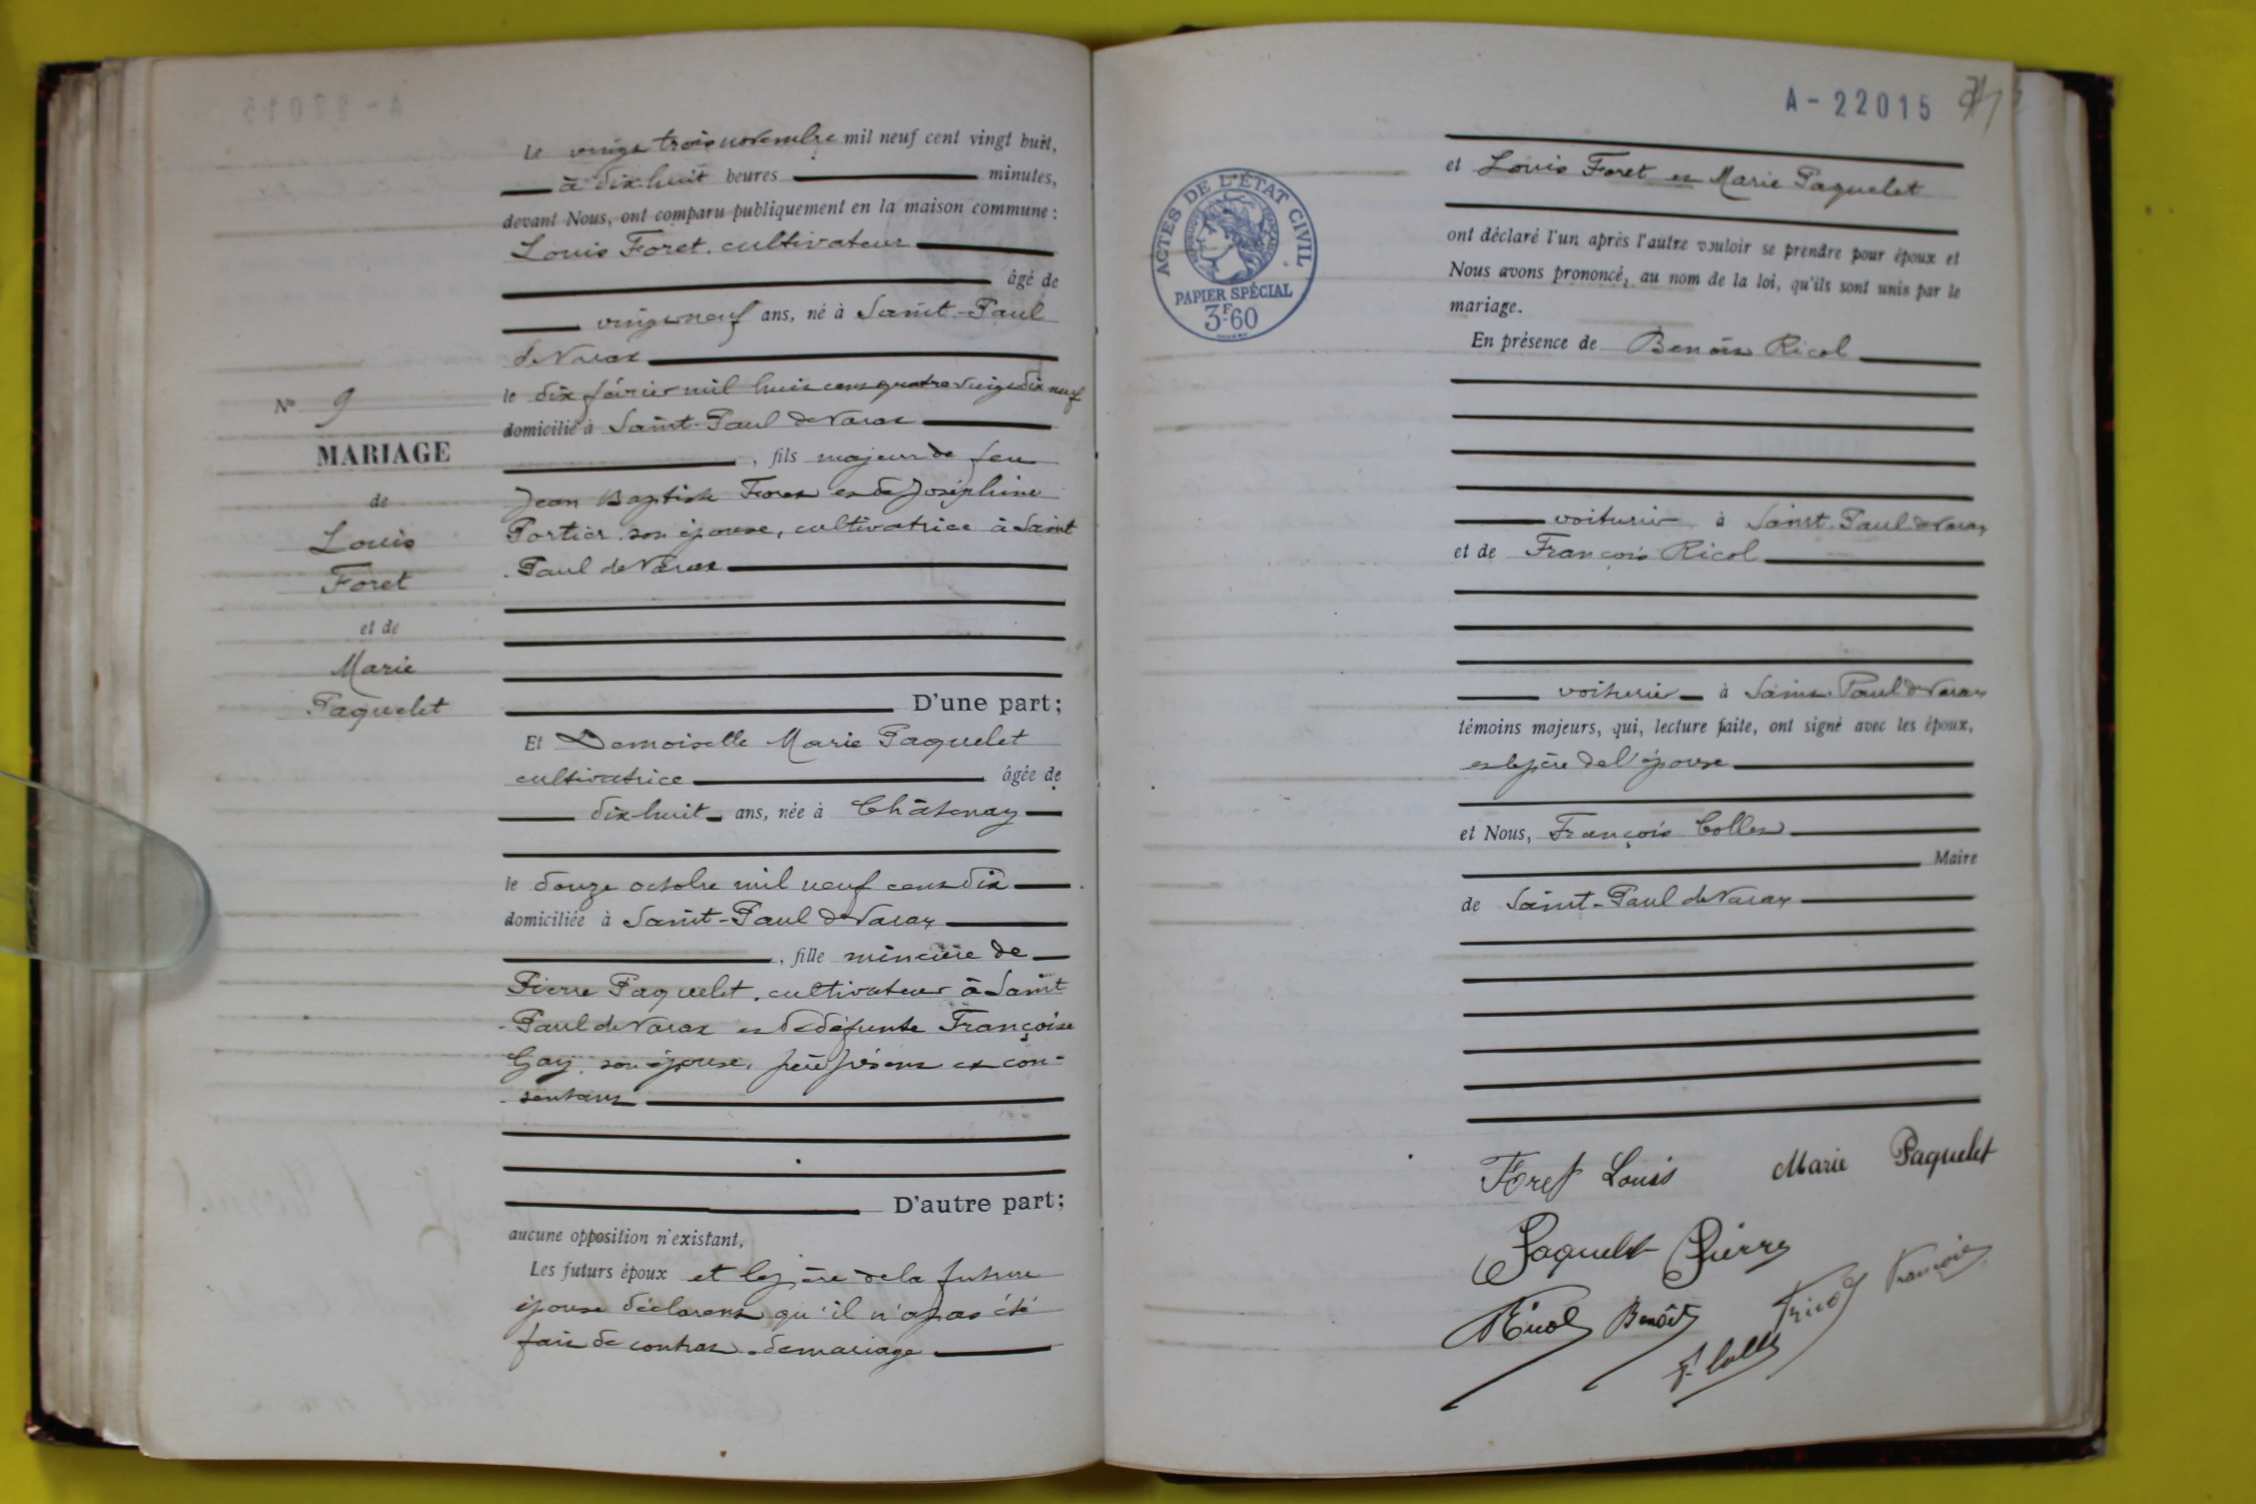 Le vingt trois novembre mil neuf cent vingt huit,
à dix-huit heures minutes,
devant Nous, ont comparu publiquement en la maison commune :
Louis Foret, cultivateur
âgé de
vingt neuf ans, né à Saint-Paul
de Varax
le dix février mil huit cent quatre vingt dix neuf
domicilié à Saint-Paul de Varax
, fils majeur de feu
Jean Baptiste Foret et de Joséphine
Portier son épouse, cultivatrice à Saint
-Paul de Varax
D'une part;
Et Demoiselle Marie Paquelet
cultivatrice âgée de
dix-huit ans, née à Châtenay
le douze octobre mil neuf cent dix
domiciliée à Saint-Paul de Varax
, fille mineure de
Pierre Paquelet, cultivateur à Saint
-Paul de Varax et de défunte Françoise
Gay son épouse, père présent et con-
-sentant
D'autre part;
aucune opposition n'existant,
Les futurs époux et le père de la future
épouse déclarent qu'il n'a pas été
fait de contrat de mariage
N° 9
MARIAGE
de
Louis
Foret
et de
Marie
Paquelet
A-22015
ACTES DE L'ÉTAT CIVIL
PAPIER SPÉCIAL
3F60
et Louis Foret et Marie Paquelet
ont déclaré l'un après l'autre vouloir se prendre pour époux et
Nous avons prononcé, au nom de la loi, qu'ils sont unis par le
mariage.
En présence de Benoît Ricol
voiturier à Saint-Paul de Varax
et de François Ricol
voiturier à Saint-Paul de Varax
témoins majeurs, qui, lecture faite, ont signé avec les époux,
et le père de l'épouse
et Nous, François Collet
Maire
de Saint-Paul de Varax
Foret Louis Marie Paquelet
Paquelet Pierre
Ricol Benoît Ricol François
F. Collet